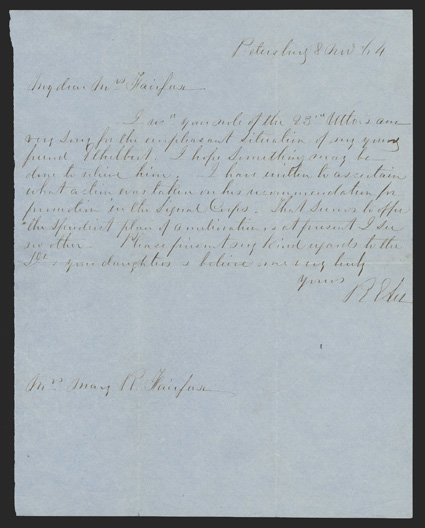 Petersburg 8 Nov '64
My dear Mrs Fairfax
I recd your note of the 23rd Ulto & am
very sorry for the unpleasant situation of my young
friend Ethelbert. I hope something may be
done to relieve him. I have written to ascertain
what action was taken on his recommendation for
promotion in the Signal Corps. That seems to offer
the speediest plan of amelioration & at present I see
no other. Please present my kind regards to the
& your daughters & believe me very truly
Yours
R E Lee
Mrs Mary R. Fairfax